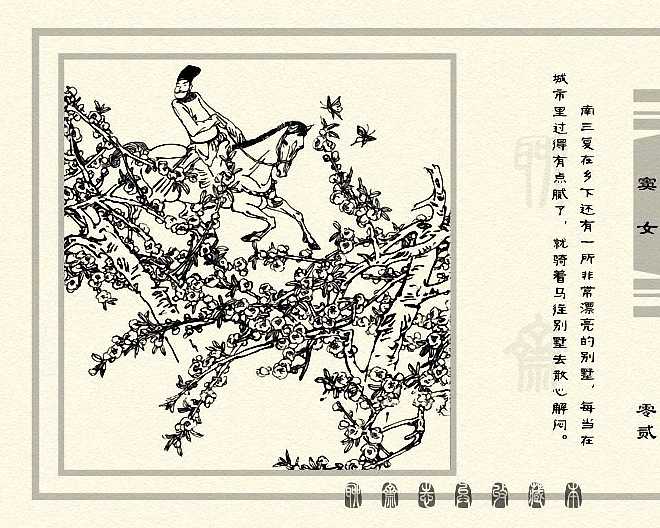 窦女
零贰
南三复在乡下还有一所非常漂亮的别墅，每当在
城市里过得有点腻了，就骑着马往别墅去散心解闷。